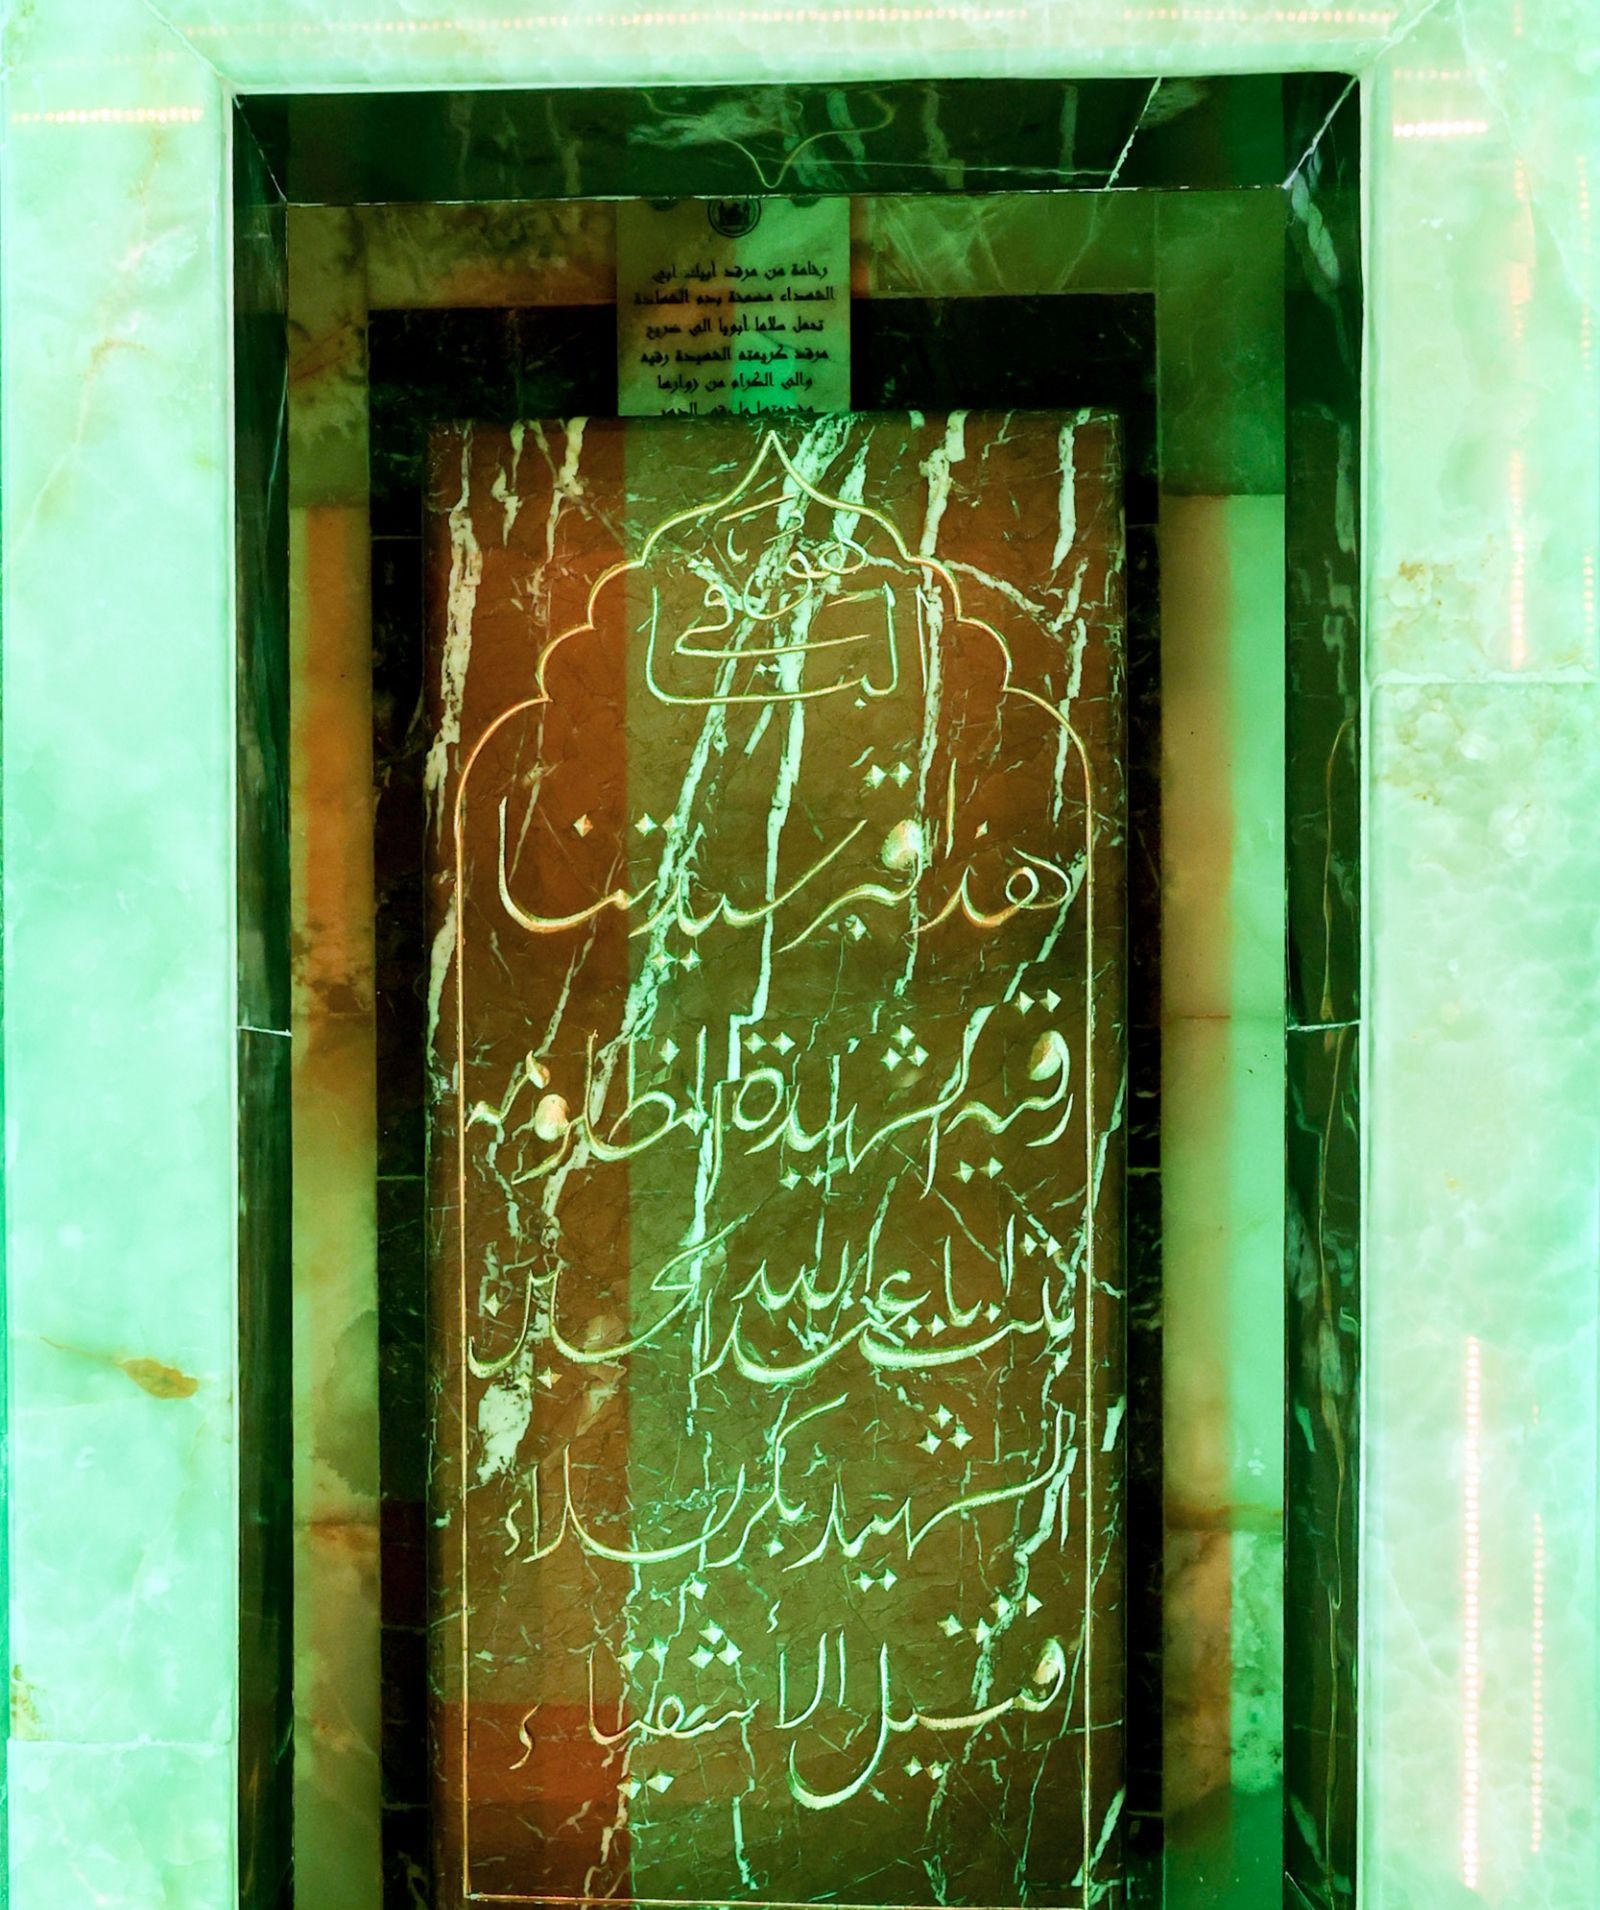 رخامة من مرقد أبيك أبي
الشهداء مضمخة بدم الشهادة
تحمل سلاما أبويا الى ضريح
مرقد كريمته الشهيدة رقيه
والى الكرام من زوارها
هو
الباقي
هذا قبر سيدتنا
رقية الشهيدة المظلومة
بنت ابا عبد الله الحسين
الشهيد بكربلاء
قتيل الأشقياء